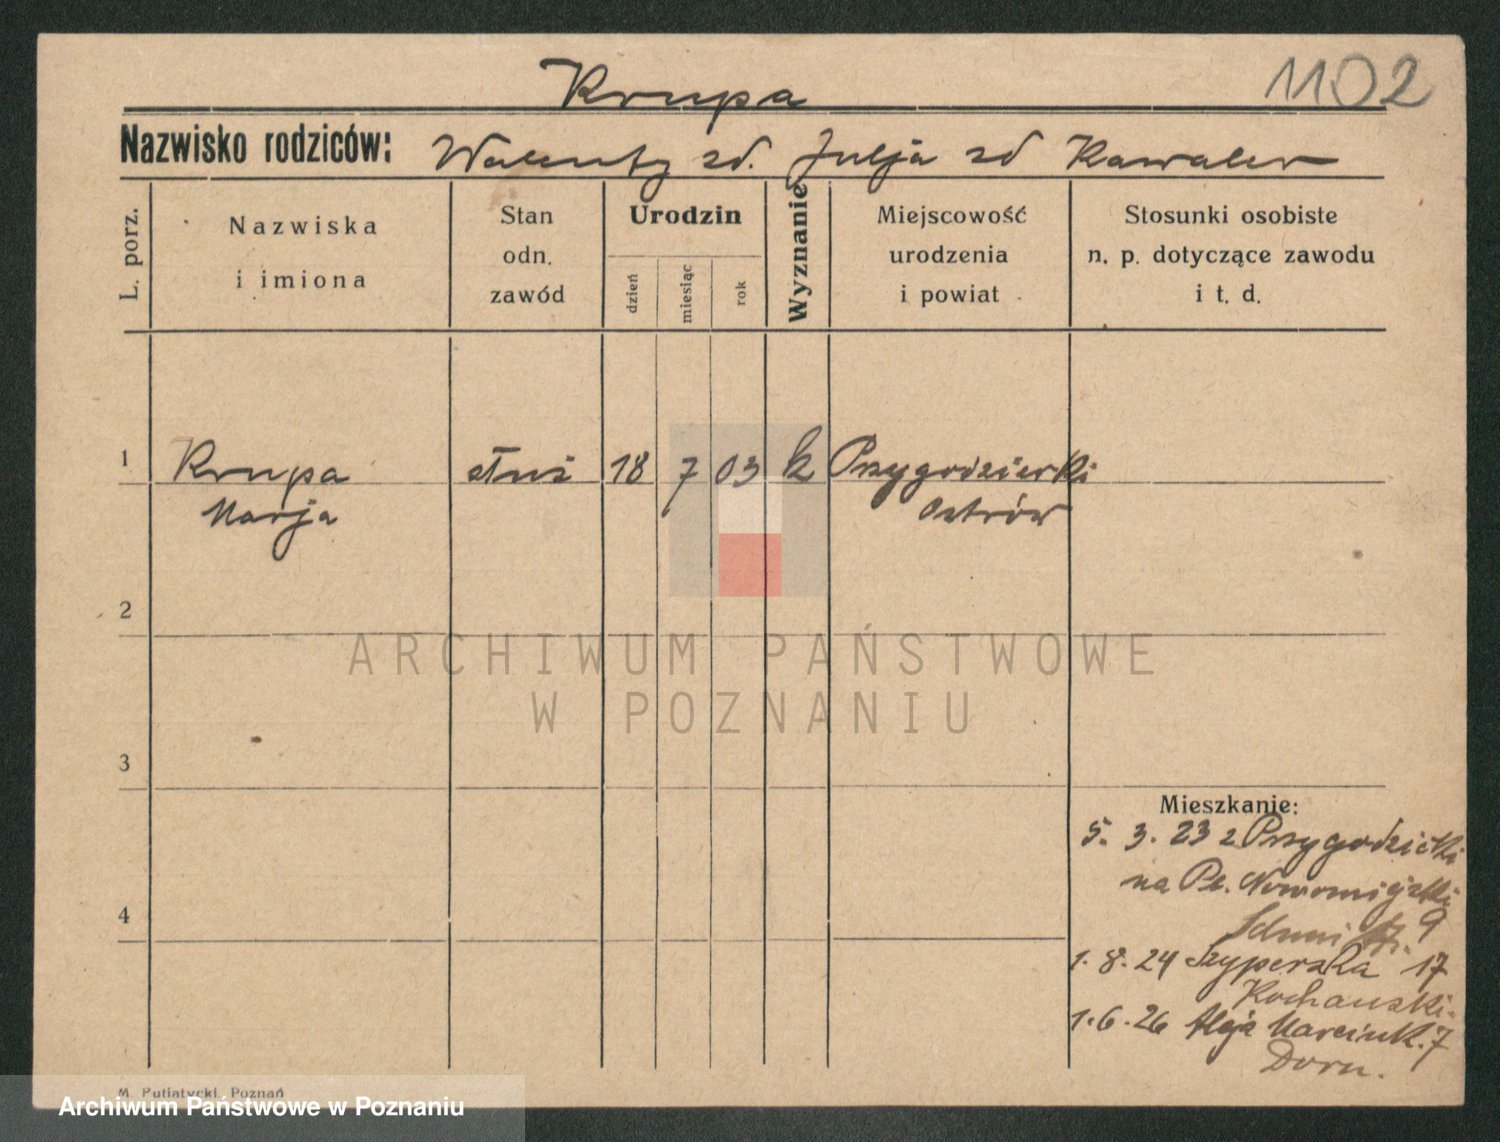 Krupa
1102
Nazwisko rodziców: Walenty zd. Julja zd Kawaler
L. porz.
Nazwiska
i imiona
Stan
odn.
zawód
Urodzin
dzień
miesiąc
rok
Wyznanie
Miejscowość
urodzenia
i powiat
Stosunki osobiste
n. p. dotyczące zawodu
i t. d.
1 Krupa służ 18 7 03 k Przygodziczki
Marja Ostrów
2
ARCHIWUM PAŃSTWOWE
W POZNANIU
3
Mieszkanie:
5. 3. 23 z Przygodziczki
na Pl. Nowomiejski
9
4
1. 8. 24 Szyperska 17
Kochanski.
1. 6. 26 Aleja Marcink. 7
M. Putiatycki, Poznań
Archiwum Państwowe w Poznaniu